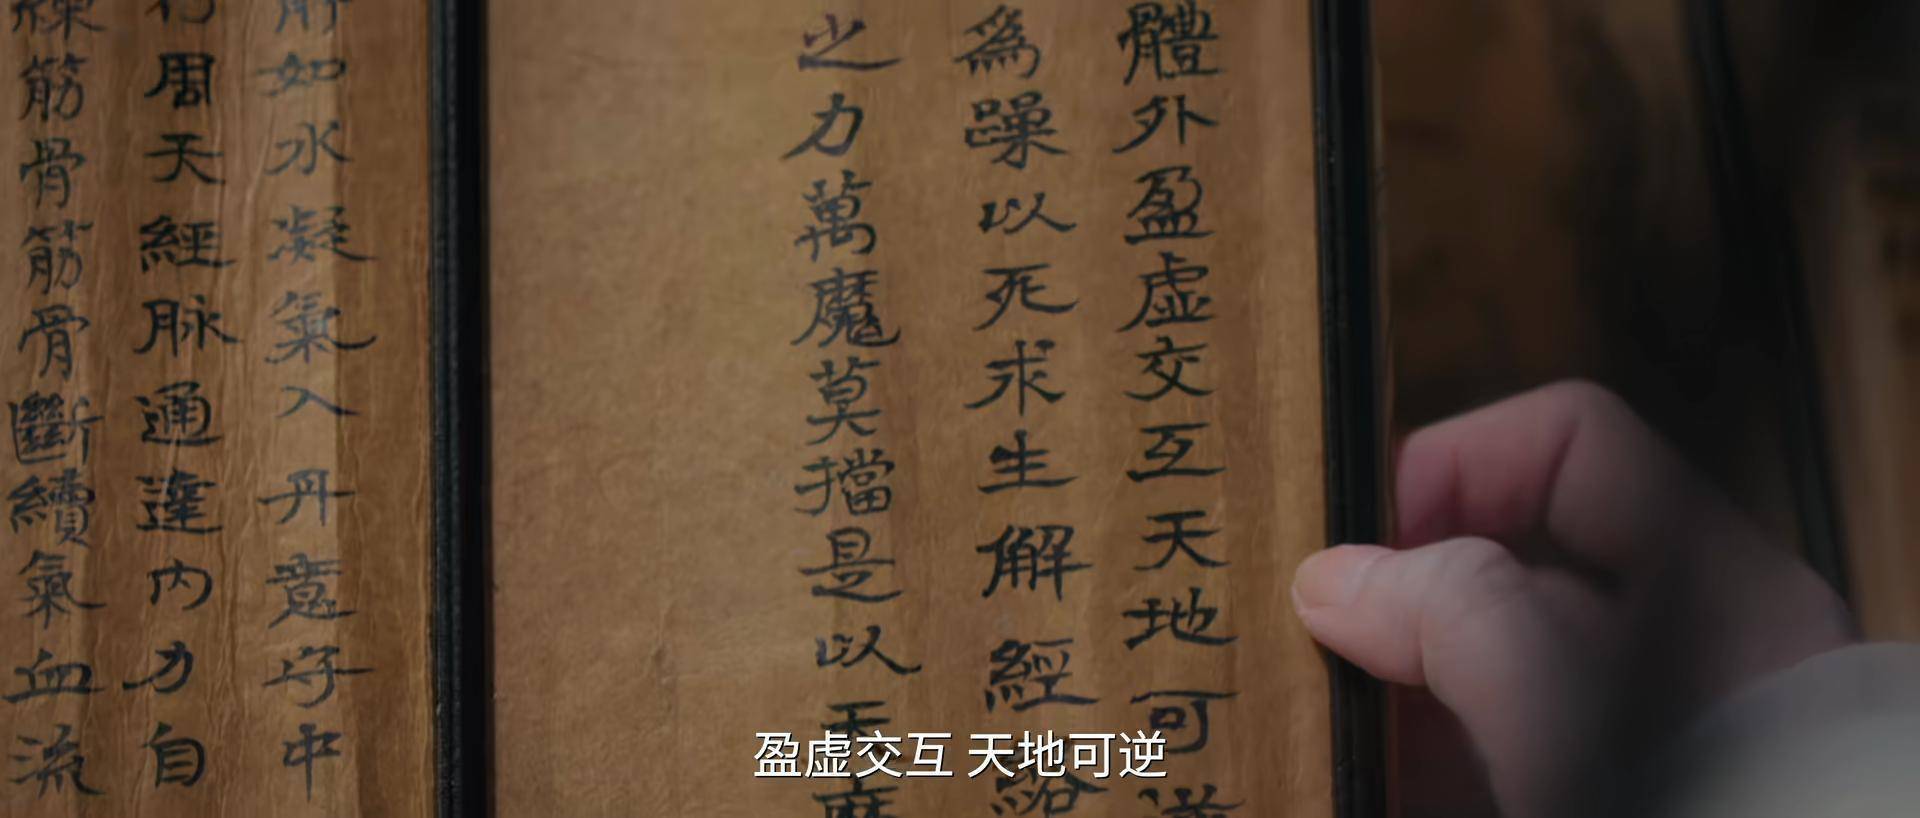 體外盈虛交互天地可逆
為躁以死求生解經絡
之力萬魔莫擋是以天魔
解如水凝氣入丹意守中
行周天經脉通達內力自
練筋骨筋骨斷續氣血流
盈虚交互 天地可逆